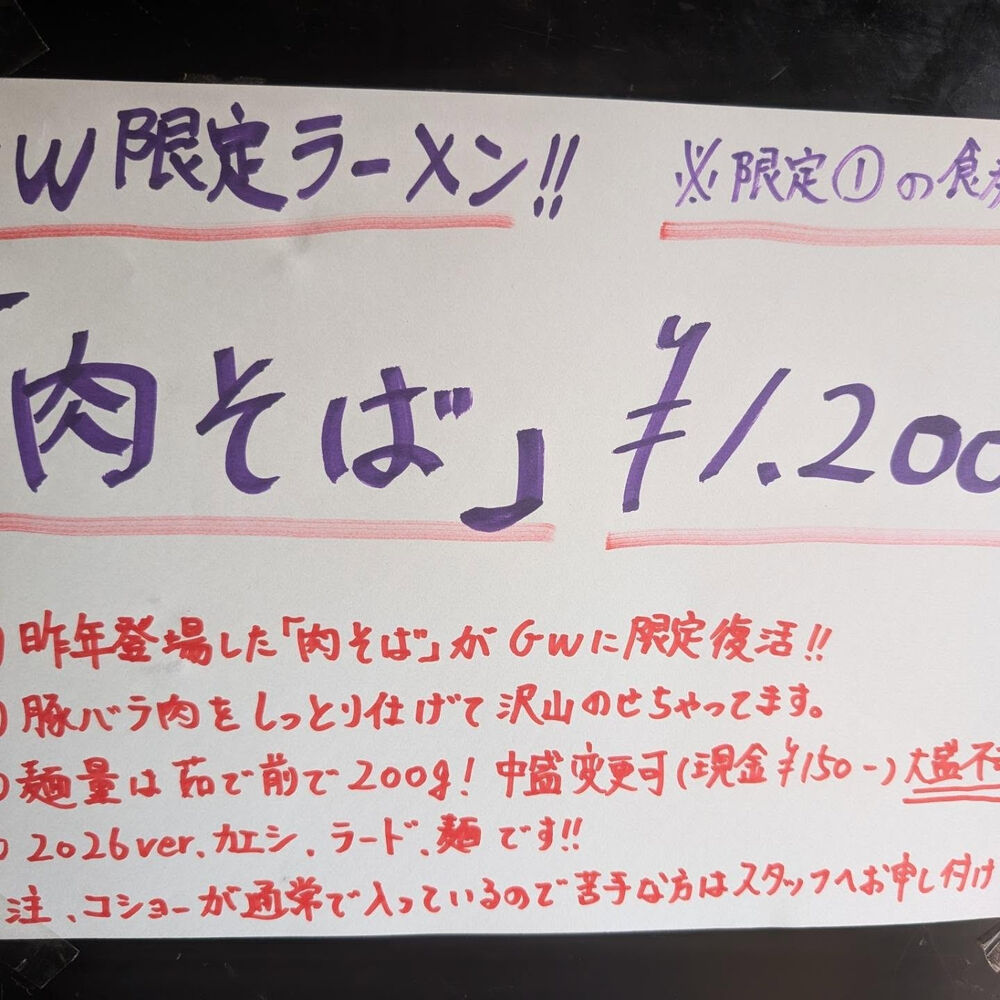 GW限定ラーメン!!
※限定①の食券
「肉そば」 ¥1.200
昨年登場した「肉そば」がGWに限定復活!!
豚バラ肉をしっとり仕げて沢山のせちゃってます。
麺量は茹で前で200g! 中盛変更可(現金¥150-)大盛不可
2026ver.カエシ、ラード、麺です!!
注、コショーが通常で入っているので苦手な方はスタッフへお申し付け